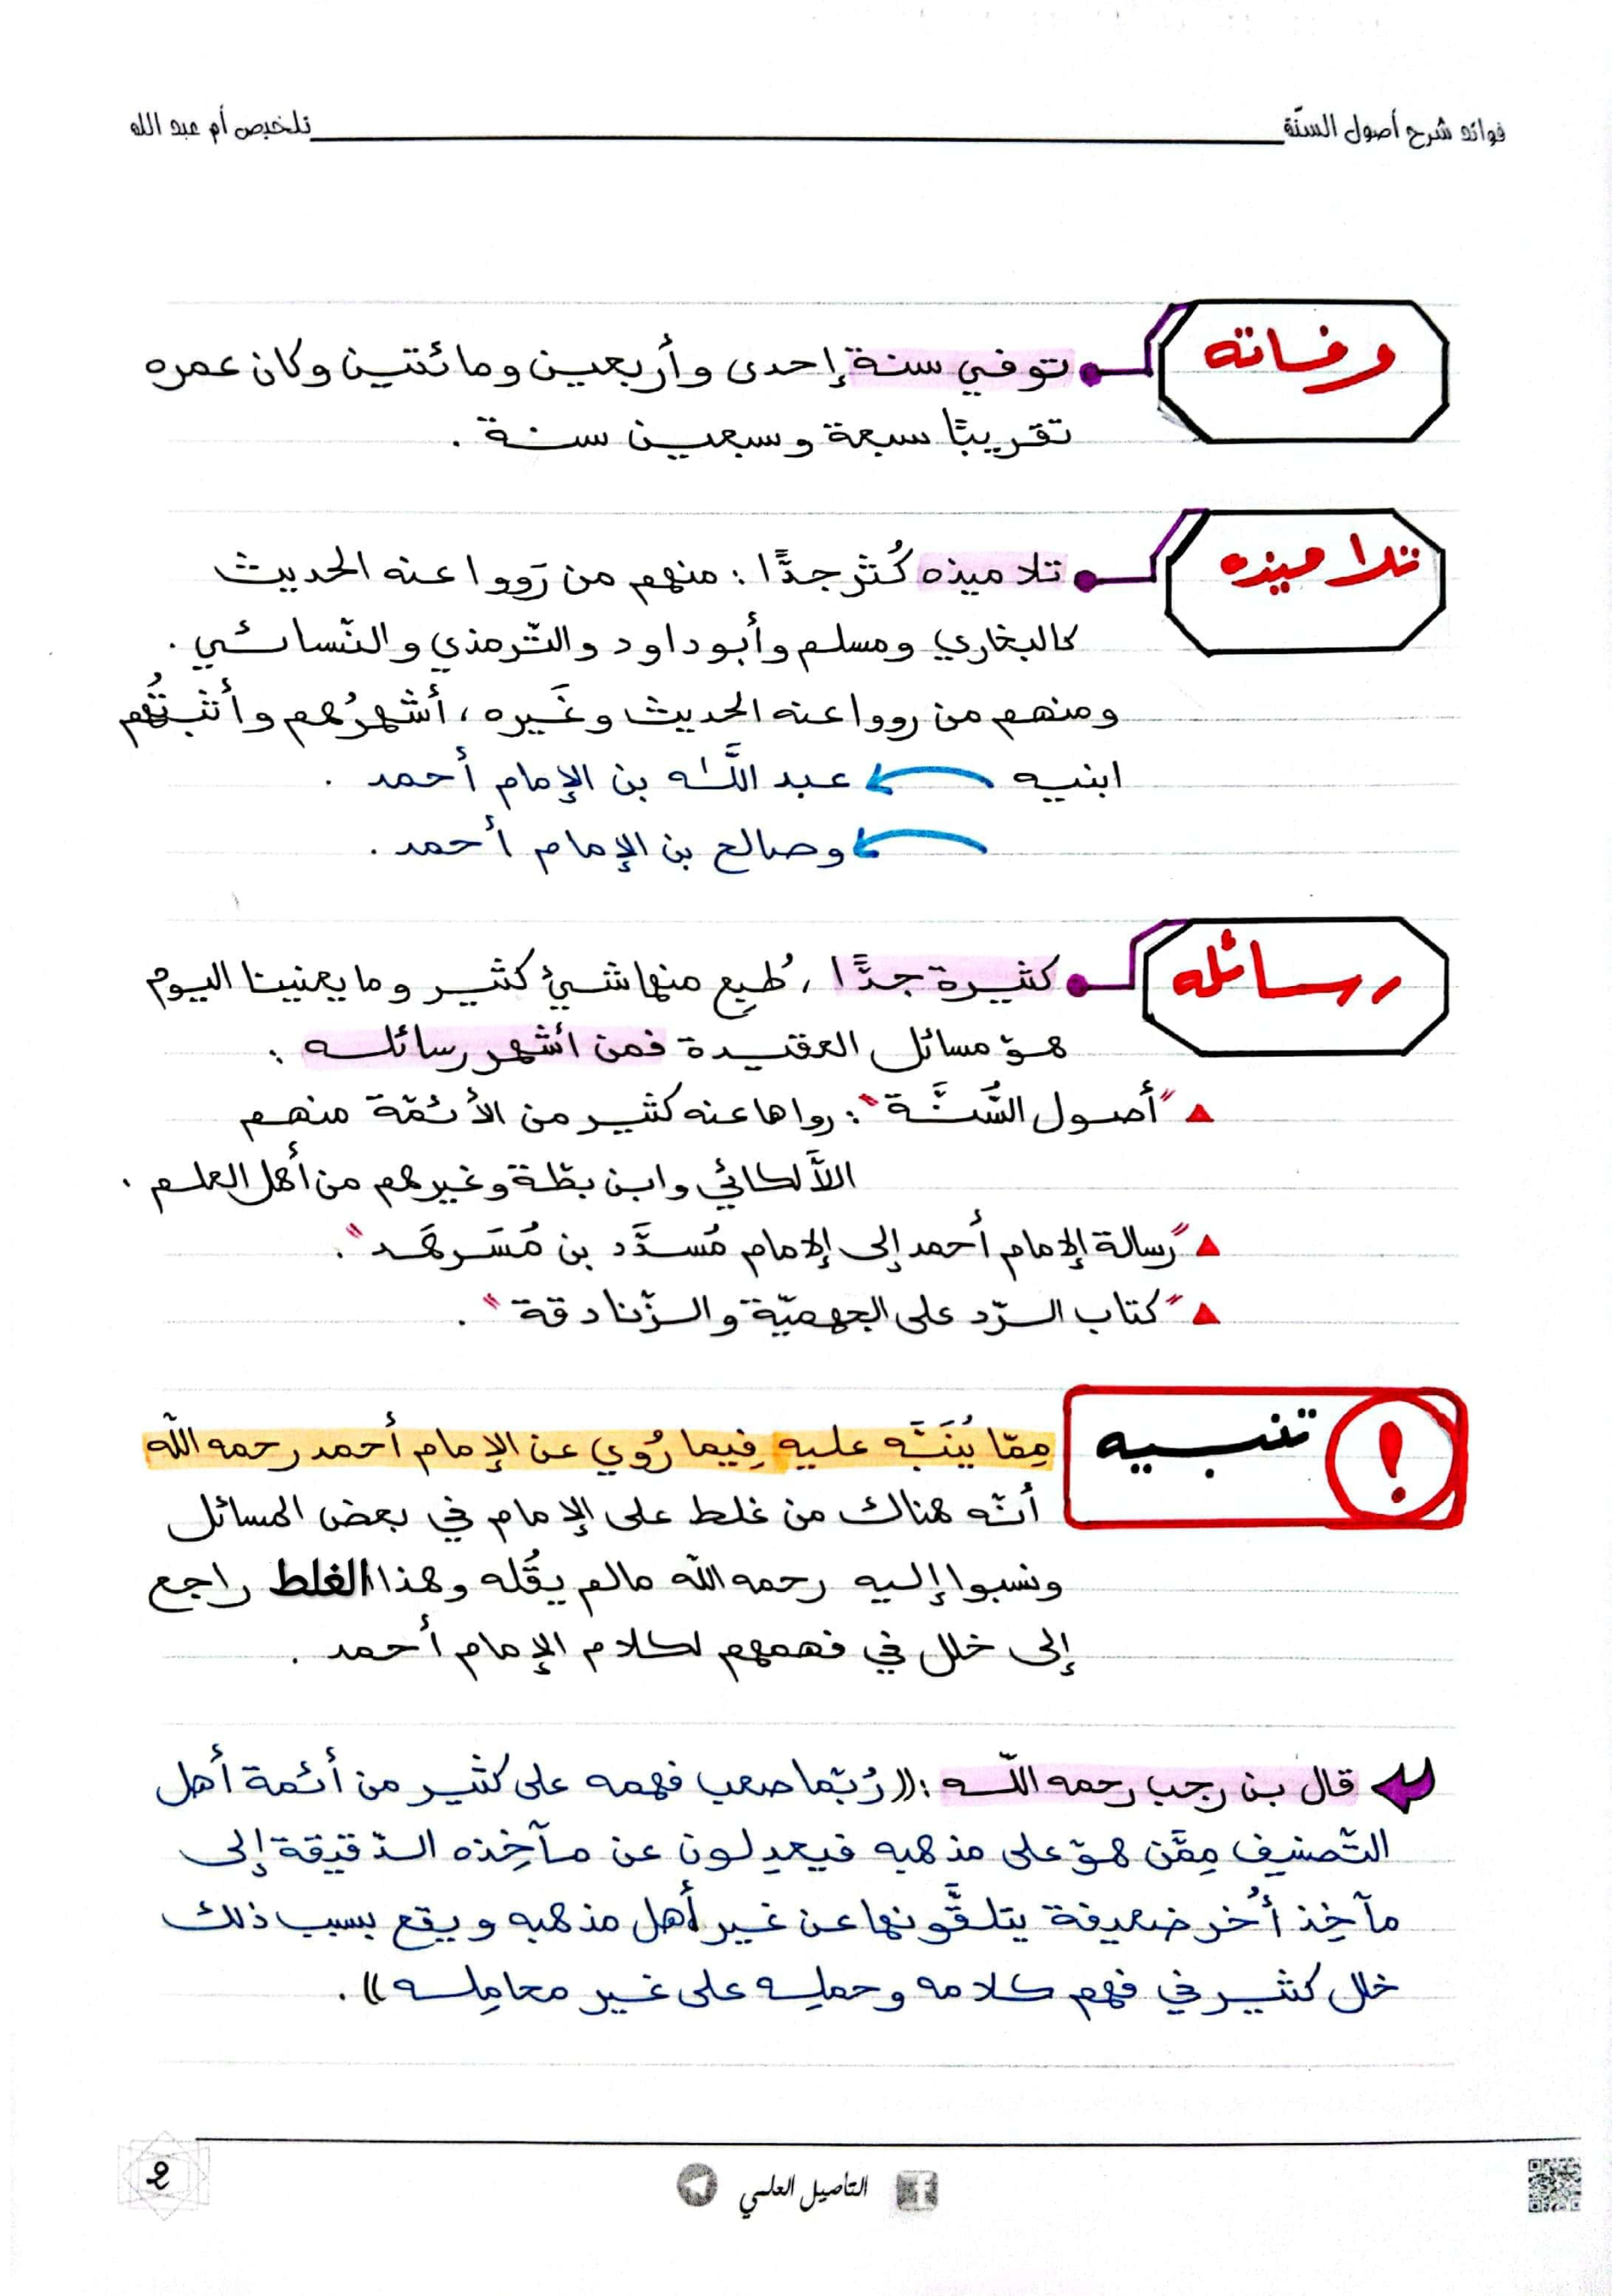 فوائد شرح أصول السنّة
تلخيص أم عبد الله
وفاته
توفي سنة إحدى وأربعين ومائتين وكان عمره
تقريبًا سبعة وسبعين سنة .
تلاميذه
تلاميذه كُثر جدًّا : منهم من رَووا عنه الحديث
كالبخاري ومسلم وأبو داود والتّرمذي والنّسائي .
ومنهم من رووا عنه الحديث وغَيره ، أشهرُهم وأثبتُهم
ابنيه عبد اللَّه بن الإمام أحمد .
وصالح بن الإمام أحمد .
رسائله
كثيرة جدًّا ، طُبِع منها شيئ كثير وما يعنينا اليوم
هوّ مسائل العقيدة فمن أشهر رسائله :
"أصول السُّنَّة" : رواها عنه كثير من الأئمّة منهم
اللَّالكائي وابن بطّة وغيرهم من أهل العلم .
"رسالة الإمام أحمد إلى الإمام مُسدَّد بن مُسَرهَد" .
"كتاب الرّد على الجهميّة والزّنادقة" .
تنبيه !
مِمّا يُنَبَّه عليه فِيما رُوي عن الإمام أحمد رحمه اللّه
أنّه هناك من غلط على الإمام في بعض المسائل
ونسبوا إليه رحمه اللّه مالم يقُله وهذا الغلط راجع
إلى خلل في فهمهم لكلام الإمام أحمد .
قال بن رجب رحمه اللّه : ((رُبّما صعب فهمه على كثير من أئمة أهل
التّصنيف مِمَّن هوّ على مذهبه فيعدِلون عن مآخِذه الدّقيقة إلى
مآخِذ أُخر ضعيفة يتلقَّونها عن غير أهل مذهبه ويقع بسبب ذلك
خلل كثير في فهم كلامه وحملِه على غير محامِله)) .
التأصيل العلمي
2